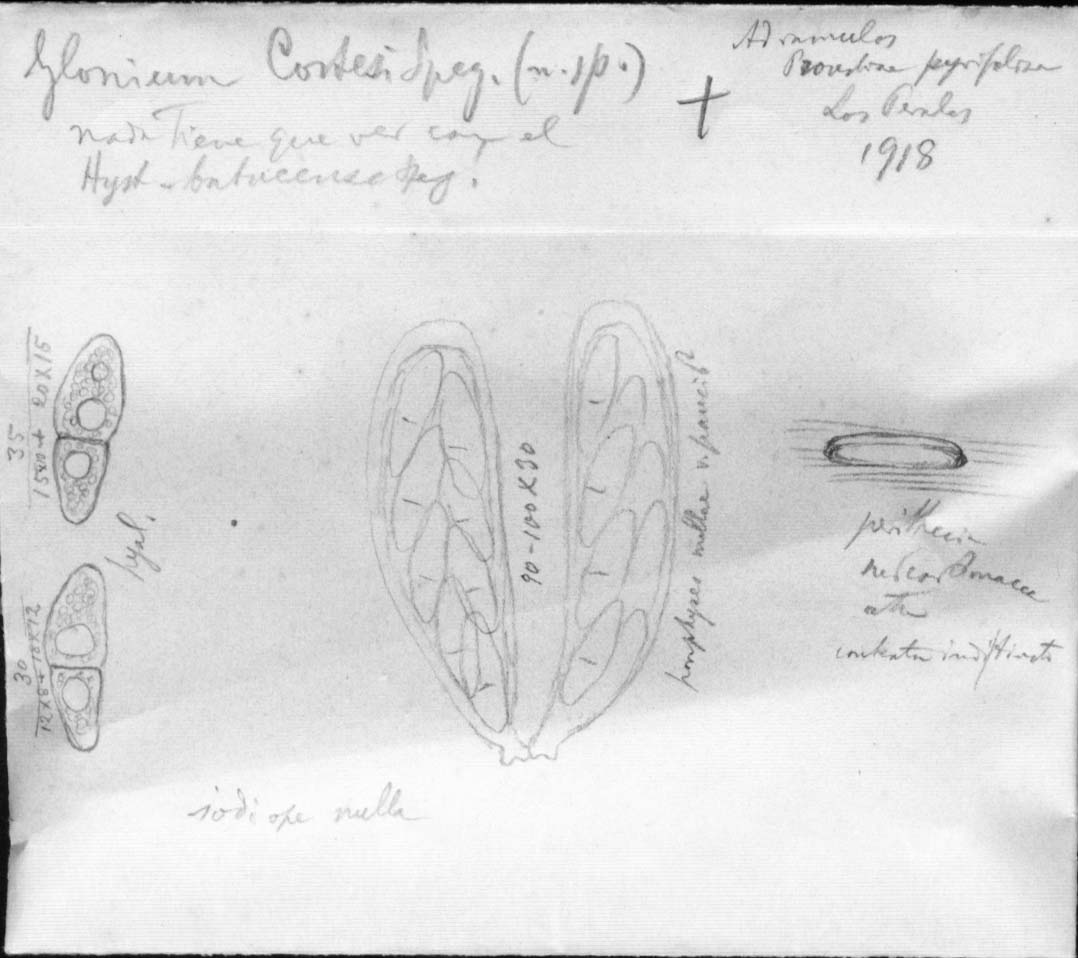 Glonium Cortesi Speg. (n. sp.)
nada tiene que ver con el
Hyst. batucense Speg.
+
Ad ramulos
Proustiae pyrifoliae
Los Perales
1918
35
15x10 + 20x15
hyal.
30
12x8 + 18x12
90-100 x 30
paraphyses nullae v. paucis
perithecia
contextu indistincto
iodi ope nulla